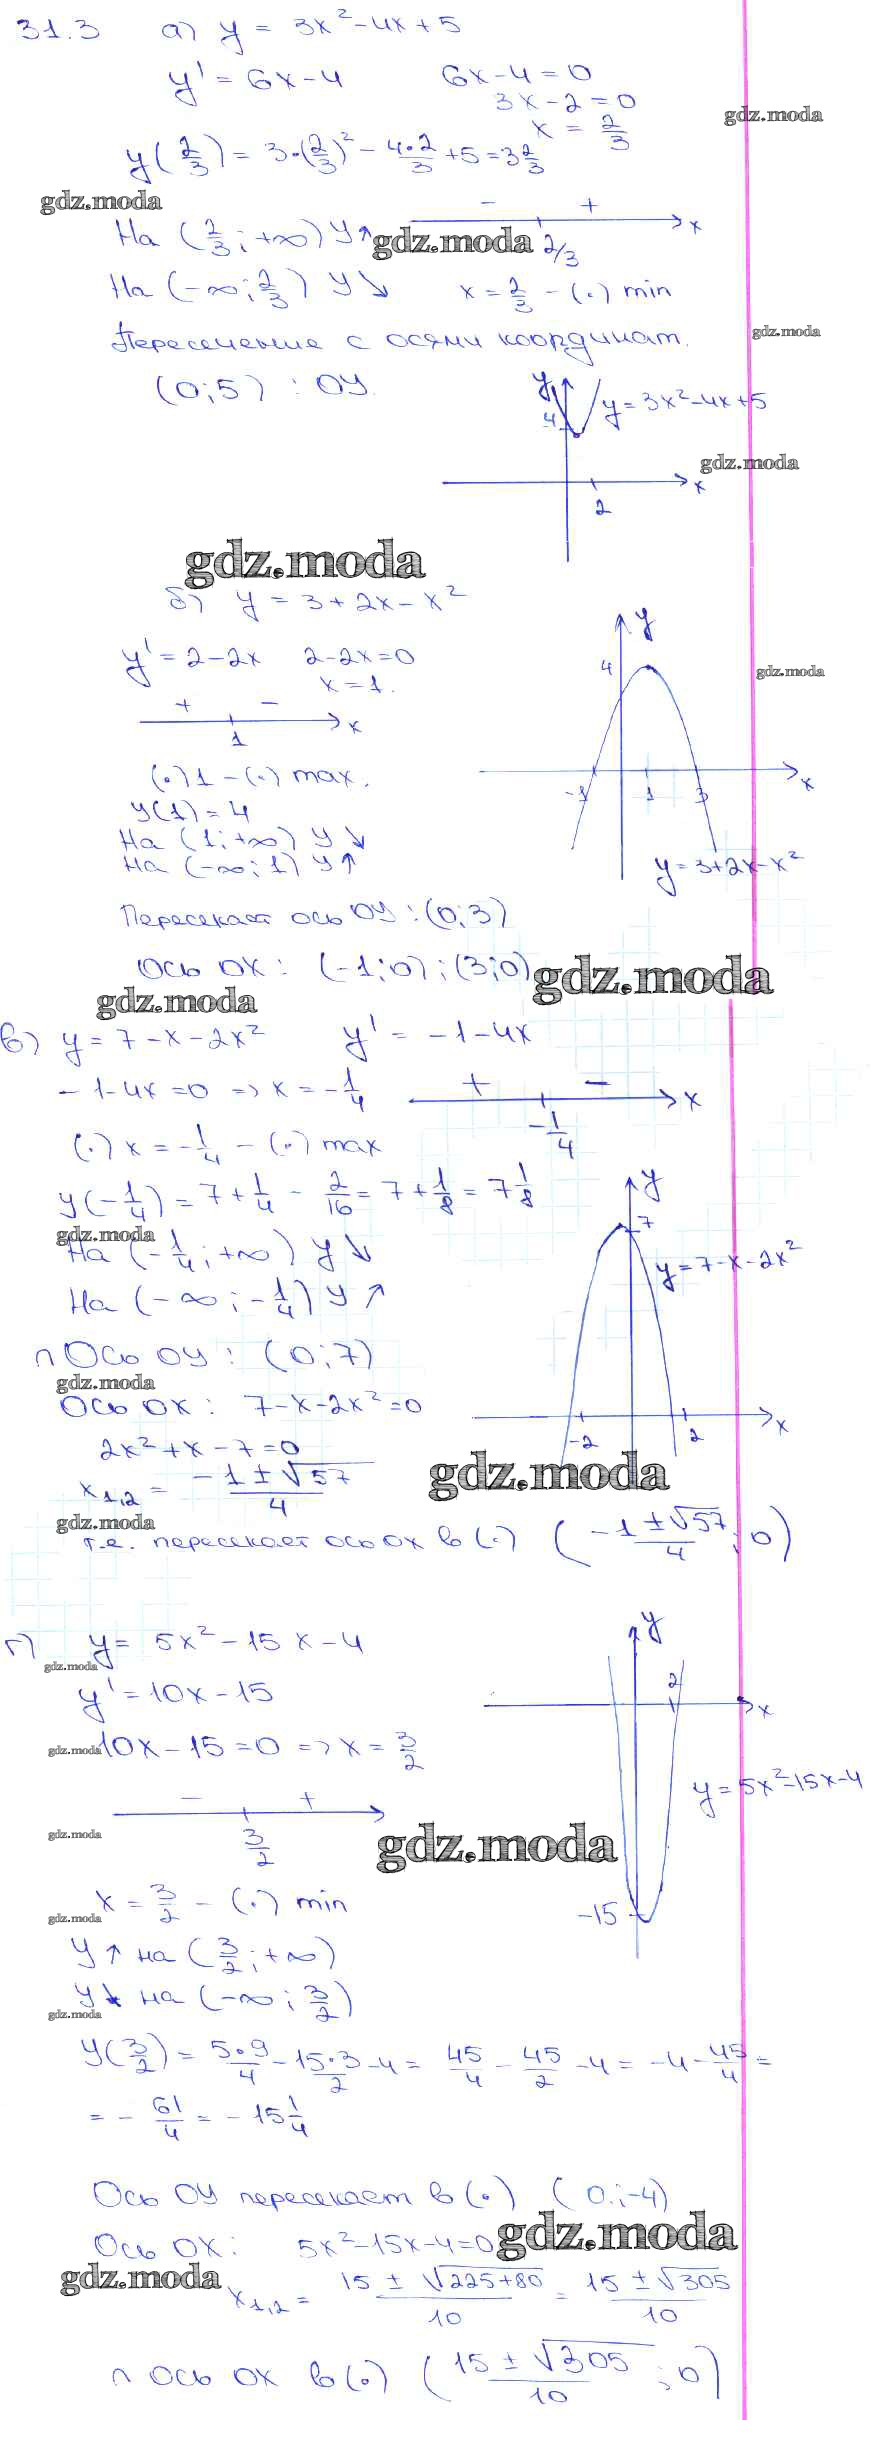 31.3 а) y = 3x² - 4x + 5
y' = 6x - 4 6x - 4 = 0
3x - 2 = 0
gdz.moda
x = 2/3
y(2/3) = 3•(2/3)² - 4•2/3 + 5 = 3 2/3
gdz.moda
- + x
2/3
На (2/3; +∞) y↑
gdz.moda
На (-∞; 2/3) y↘ x = 2/3 - (•) min
Пересечение с осями координат.
gdz.moda
(0; 5) : OY.
y
4
y = 3x² - 4x + 5
gdz.moda
x
2
gdz.moda
б) y = 3 + 2x - x²
y' = 2 - 2x 2 - 2x = 0
x = 1.
+ - x
1
y
4
gdz.moda
x
-1 1 3
y = 3 + 2x - x²
(•) 1 - (•) max.
y(1) = 4
На (1; +∞) y↘
На (-∞; 1) y↑
Пересекает ось OY : (0; 3)
Ось OX : (-1; 0) ; (3; 0)
gdz.moda
gdz.moda
в) y = 7 - x - 2x² y' = -1 - 4x
-1 - 4x = 0 => x = -1/4
+ - x
-1/4
(•) x = -1/4 - (•) max
y(-1/4) = 7 + 1/4 - 2/16 = 7 + 1/8 = 7 1/8
gdz.moda
На (-1/4; +∞) y↘
На (-∞; -1/4) y↑
y
7
y = 7 - x - 2x²
x
-2 2
∩ Ось OY : (0; 7)
gdz.moda
Ось OX : 7 - x - 2x² = 0
2x² + x - 7 = 0
x1,2 = (-1 ± √57)/4
gdz.moda
gdz.moda
т.е. пересекает ось OX в (•) ((-1 ± √57)/4; 0)
г) y = 5x² - 15x - 4
gdz.moda
y' = 10x - 15
gdz.moda
10x - 15 = 0 => x = 3/2
- +
3/2
y
2
x
y = 5x² - 15x - 4
-15
gdz.moda
gdz.moda
x = 3/2 - (•) min
gdz.moda
y↑ на (3/2; +∞)
y↘ на (-∞; 3/2)
gdz.moda
y(3/2) = 5•9/4 - 15•3/2 - 4 = 45/4 - 45/2 - 4 = -4 - 45/4 =
= -61/4 = -15 1/4
Ось OY пересекает в (•) (0; -4)
Ось OX : 5x² - 15x - 4 = 0
gdz.moda
gdz.moda
x1,2 = (15 ± √225+80)/10 = (15 ± √305)/10
∩ Ось OX в (•) ((15 ± √305)/10; 0)